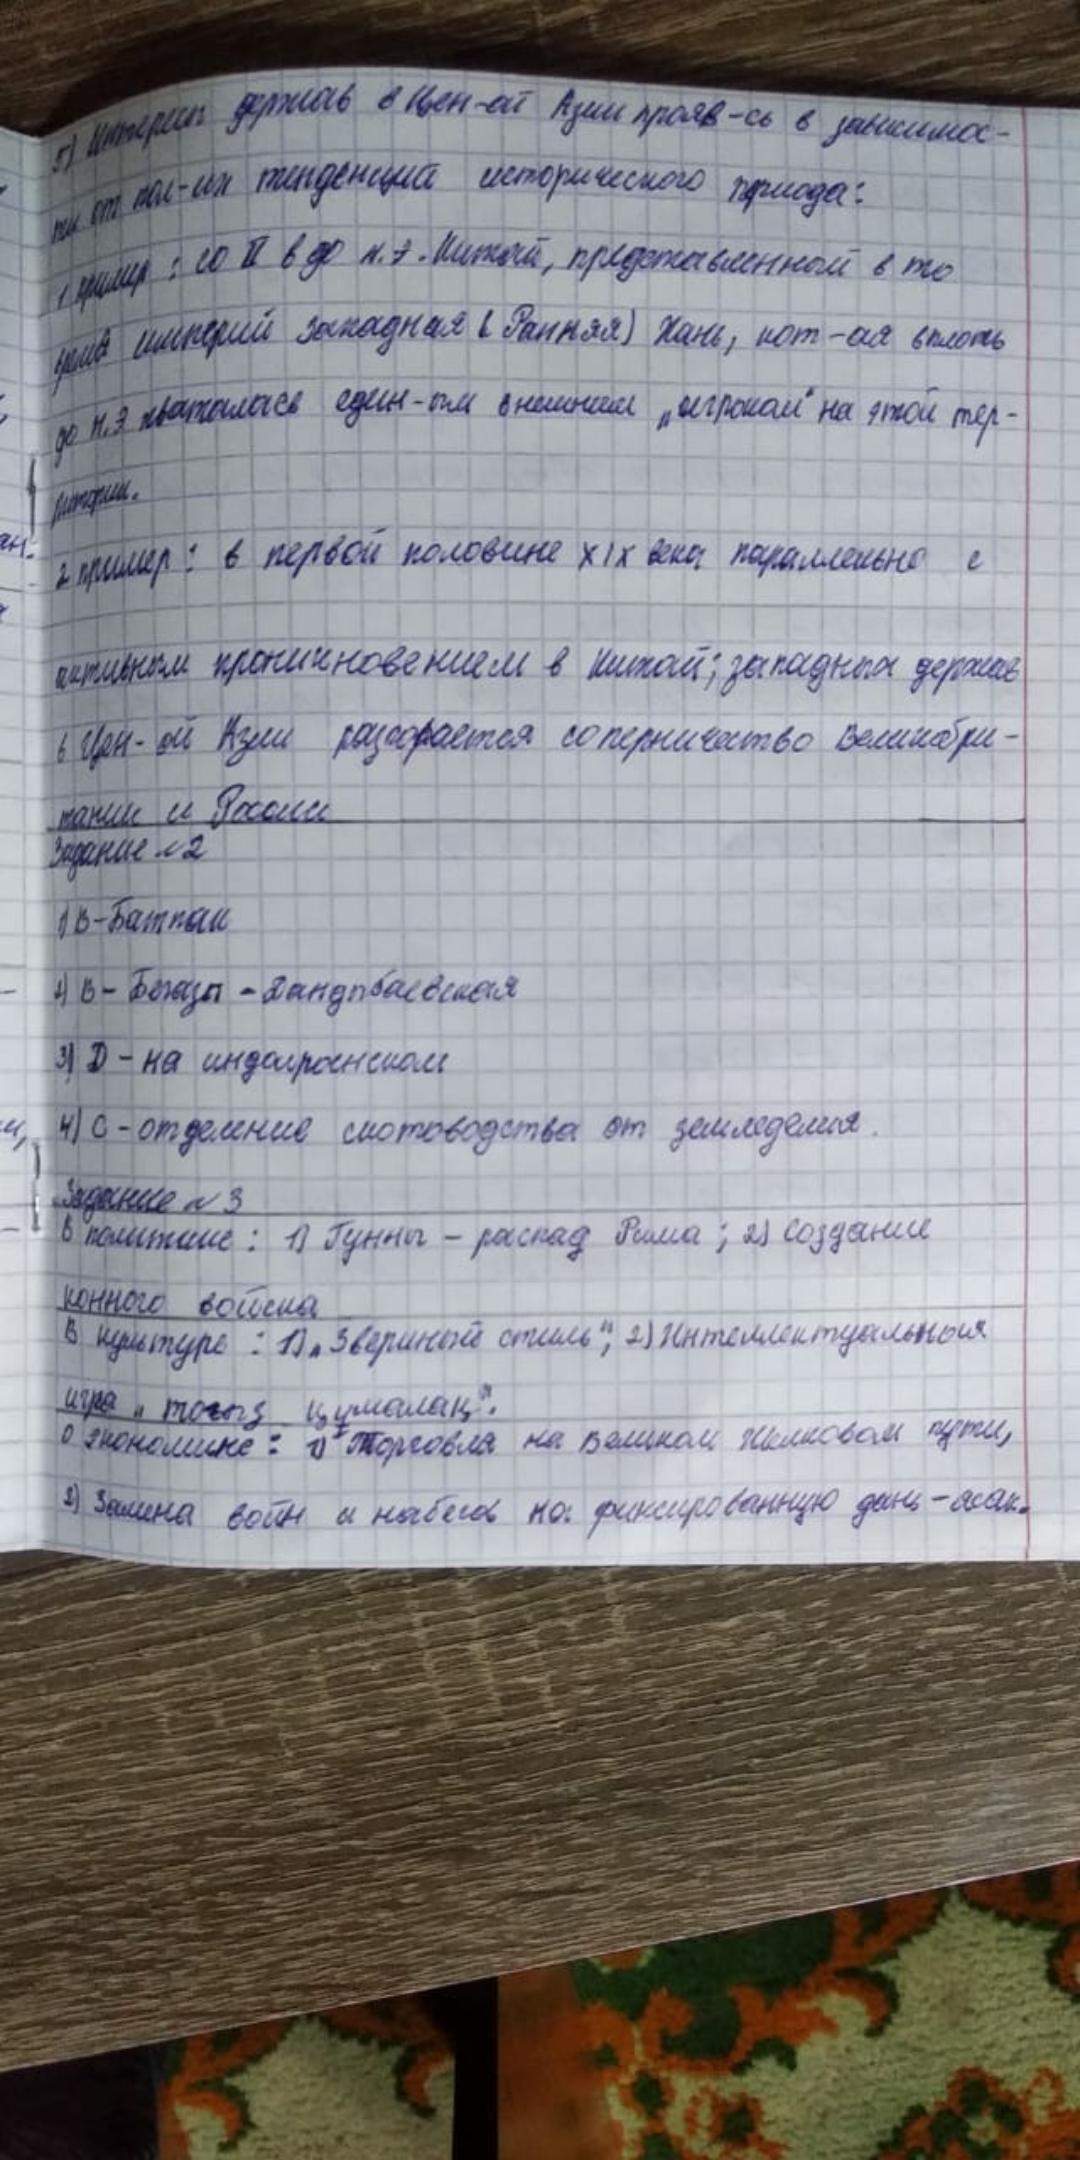 5) Интересы держав в Цен-ой Азии прояв-сь в зависимос-
ти от пол-их тенденций исторического периода:
1 пример: со II в до н.э. Китай, представленной в то
время империй Западная (Ранняя) Хань, кот-ая вплоть
до н.э являлась един-ым внешним „игроком" на этой тер-
ритории.
2 пример: в первой половине XIX века параллельно с
активным проникновением в Китай; западных держав
в Цен-ой Азии разгорается соперничество Великобри-
тании и России
Задание №2
1) B - Батпак
2) B - Бегазы - Дандыбаевская
3) D - на индоиранском
4) C - отделение скотоводства от земледелия.
Задание №3
В политике: 1) Гунны - распад Рима; 2) Создание
конного войска
В культуре: 1) „Звериный стиль"; 2) Интеллектуальная
игра „тогыз кумалак".
О экономике: 1) Торговля на Великом Шелковом пути,
2) Замена войн и набегов на фиксированную дань - ясак.
ан-